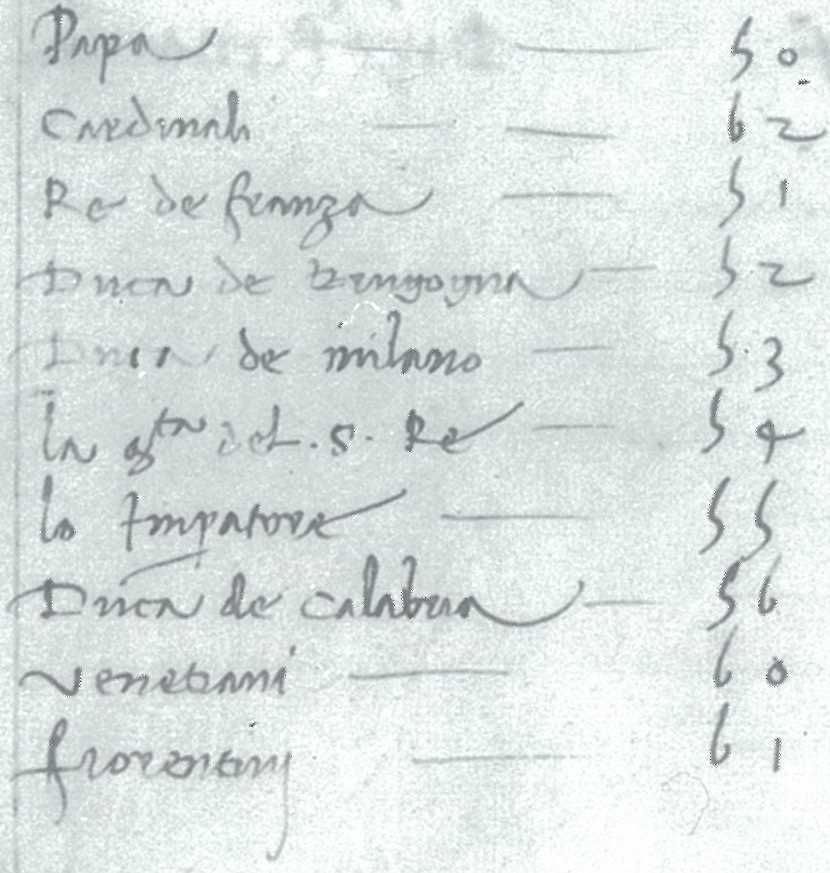 Papa 50
Cardinali 62
Re de franza 51
Duca de bergogna 52
Duca de milano 53
la m.ta del .S. Re 54
lo Imparore 55
Duca de calabria 56
Venetiani 60
fiorentinj 61